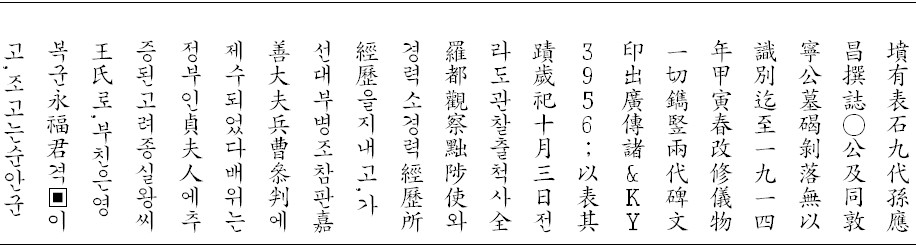 墳有表石九代孫應
昌撰誌○公及同敦
寧公墓碣剝落無以
識別迄至一九一四
年甲寅春改修儀物
一切鐫竪兩代碑文
印出廣傳諸&KY
3956;以表其
蹟歲祀十月三日전
라도관찰출척사全
羅都觀察黜陟使와
경력소경력經歷所
經歷을지내고,가
선대부병조참판嘉
善大夫兵曹叅判에
제수되었다배위는
정부인貞夫人에추
증된고려종실왕씨
王氏로,부친은영
복군永福君격▣이
고,조고는순안군